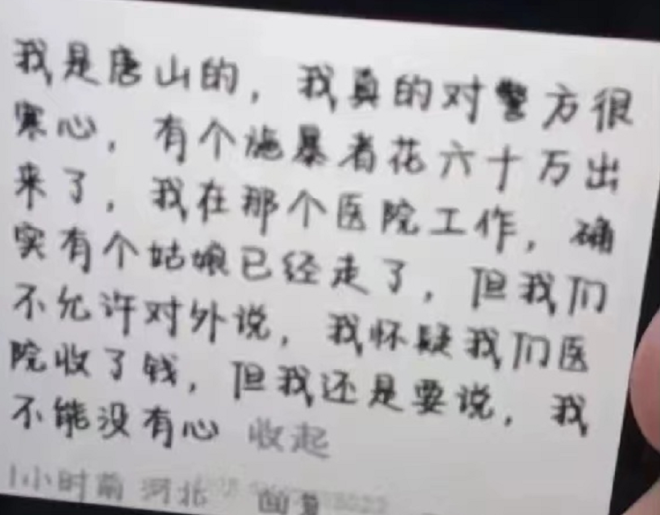 我是唐山的，我真的对警方很
寒心，有个施暴者花六十万出
来了，我在那个医院工作，确
实有个姑娘已经走了，但我们
不允许对外说，我怀疑我们医
院收了钱，但我还是要说，我
不能没有心 收起
1小时前 河北 回复